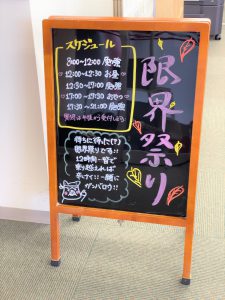 スケジュール
8:00~12:00 勉強
12:00~12:30 お昼
12:30~17:00 勉強
17:00~17:30 おやつ
17:30~21:00 勉強
質問は午後から受付します
限界祭り
待ちに待った(?)
限界祭りです!!
12時間一皆で
乗り越えれば
キツくない!! 一緒に
ガンバロウ!!